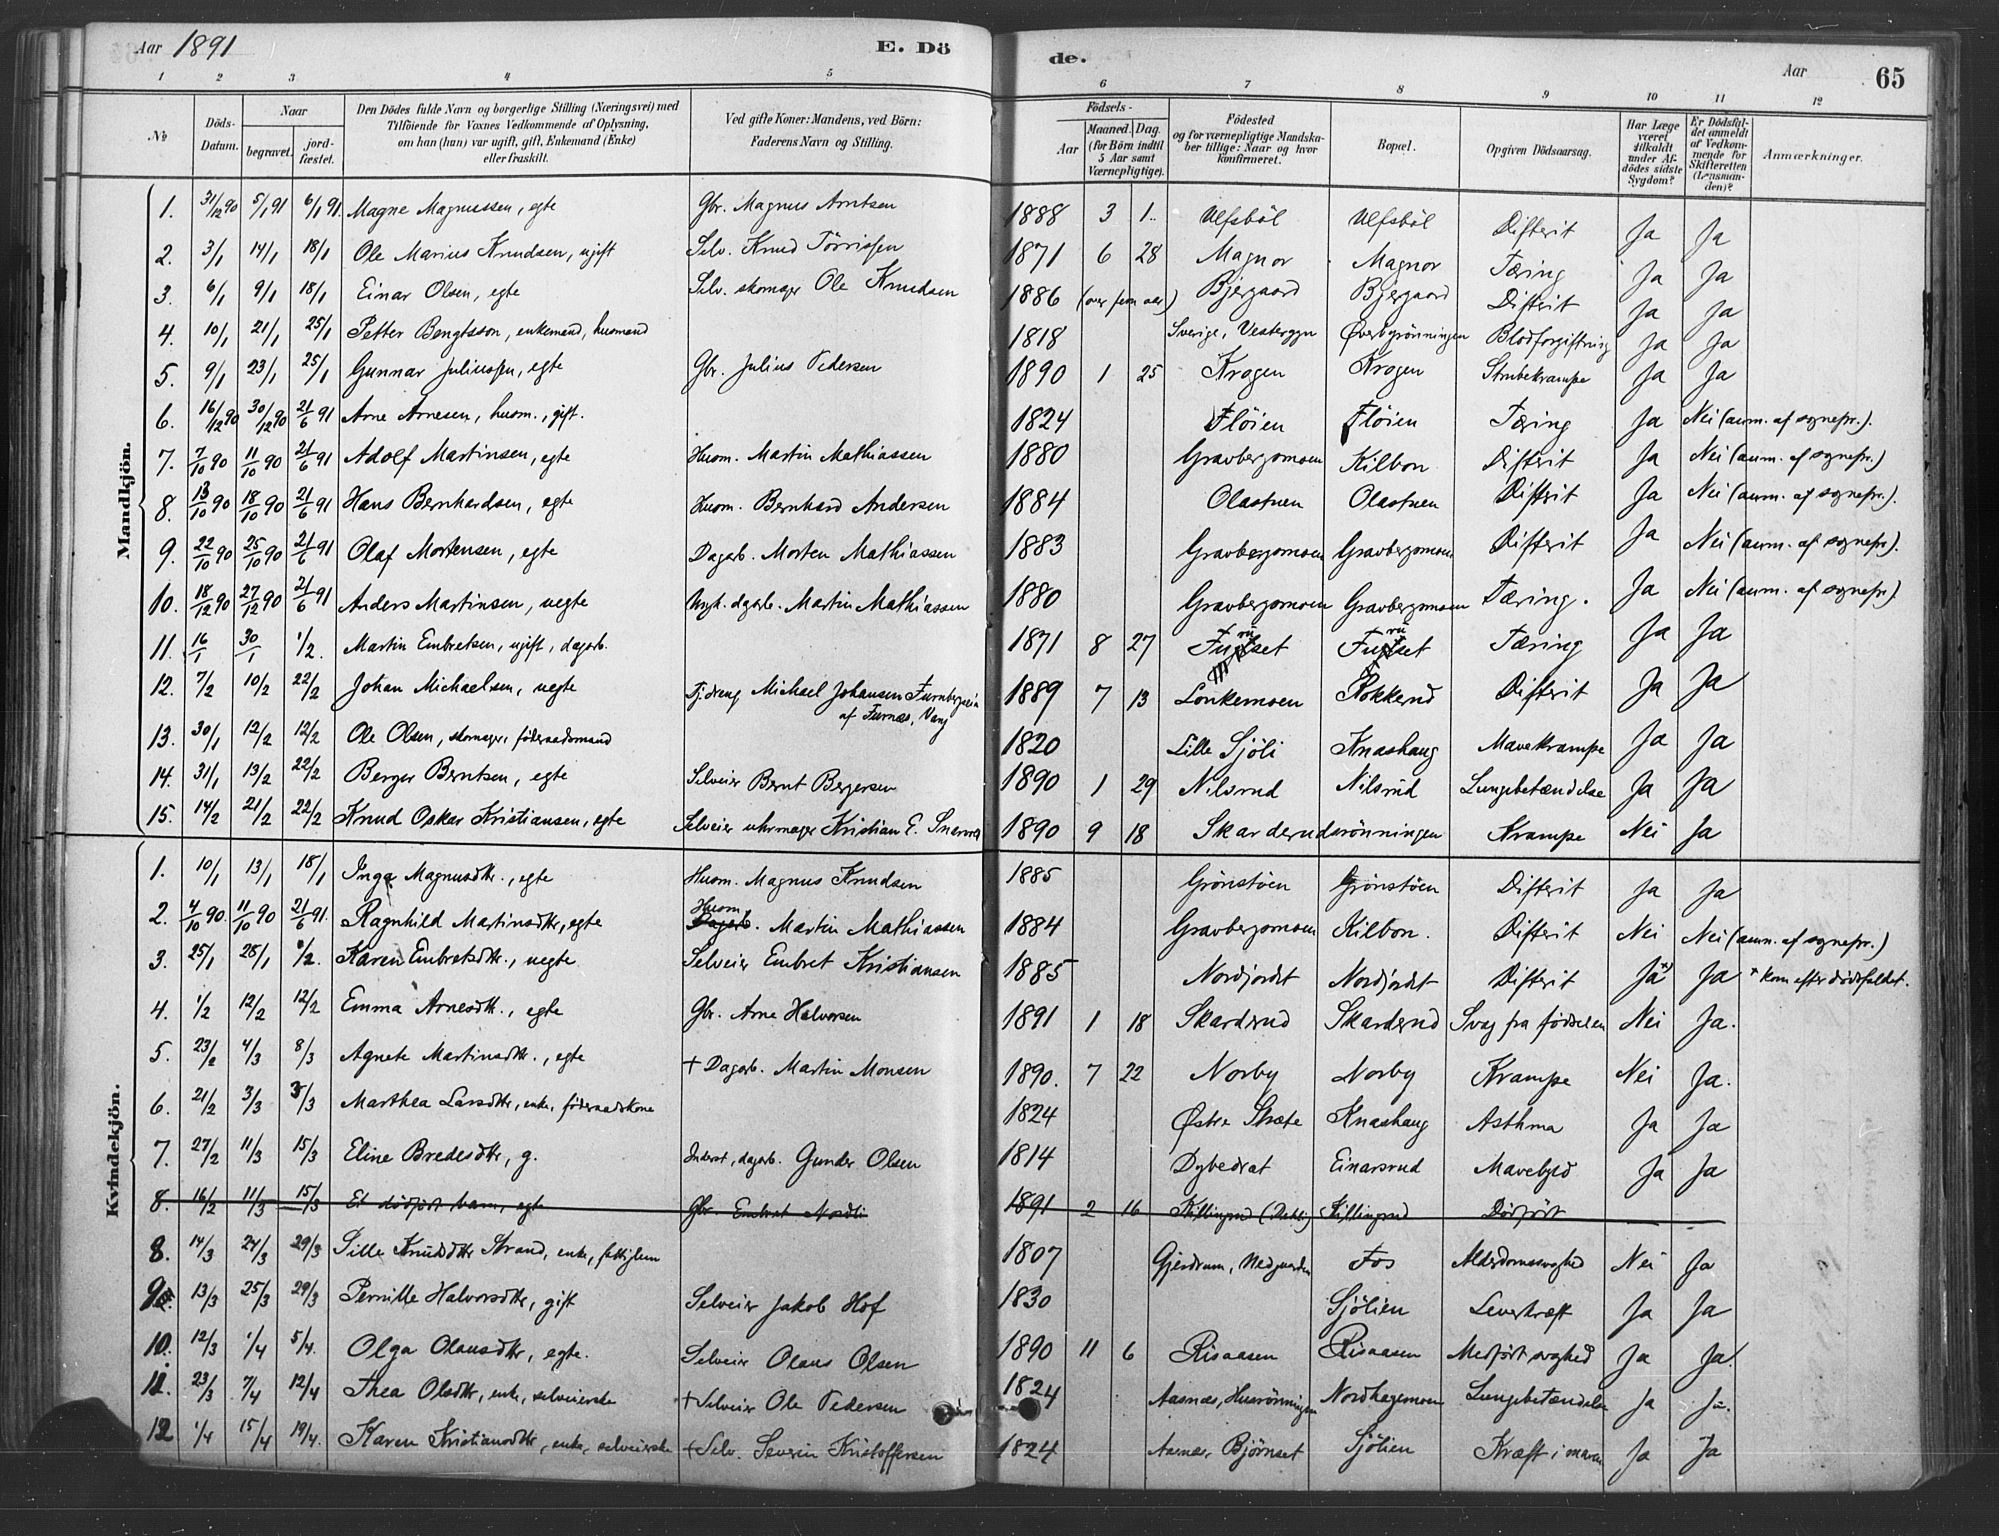 Aar 1891 E. Dö de. Aar 65
1 2 3 4 5 6 7 8 9 10 11 12
No
Döds-Datum.
Naar
begravet.
jord-fæstet.
Den Dödes fulde Navn og borgerlige Stilling (Næringsvei) med
Tilföiende for Voxnes Vedkommende af Oplysning,
om han (hun) var ugift, gift, Enkemand (Enke)
eller fraskilt.
Ved gifte Koner: Mandens, ved Börn:
Faderens Navn og Stilling.
Födsels-
Aar
Maaned. Dag.
(for Börn indtil
5 Aar samt
Værnepligtige).
Födested
og for værnepligtige Mandska-
ber tillige: Naar og hvor
konfirmeret.
Bopæl.
Opgiven Dödsaarsag.
Har Læge
været
tilkaldt
under Af-
dödes sidste
Sygdom?
Er Dödsfal-
det anmeldt
af Vedkom-
mende for
Skifteretten
(Lensman-
den)?
Anmærkninger.
Mandkjön.
1. 31/12 90 5/1 91 6/1 91 Magne Magnussen, egte Gbr. Magnus Arntsen 1888 3 1. Ulfsböl Ulfsböl Difterit Ja Ja
2. 3/1 14/1 18/1 Ole Marius Knudsen, ugift Selv. Knud Törrissen 1871 6 28 Magnor Magnor Tæring Ja Ja
3. 6/1 9/1 18/1 Einar Olsen, egte Selv. skomager Ole Knudsen 1886 (over fem aar) Bjergaard Bjergaard Difterit Ja Ja
4. 10/1 21/1 25/1 Petter Bengtsson, enkemand, husmand 1818 Sverige, Øverbygrönningen Blodforgiftning Ja Ja
5. 9/1 23/1 25/1 Gunnar Juliussen, egte Gbr. Julius Pedersen 1890 1 25 Krogen Krogen Strubekrampe Ja Ja
6. 16/12 90 30/12 90 21/6 91 Arne Arnesen, husm., gift. 1824 Flöien Flöien Tæring Ja Nei (anm. af sognepr.).
7. 7/10 90 11/10 90 21/6 91 Adolf Martinsen, egte Husm. Martin Mathiassen 1880 Gravbergsmoen Kilbon Difterit Ja Nei (anm. af sognepr.)
8. 13/10 90 18/10 90 21/6 91 Hans Bernhardsen, egte Husm. Bernhard Andersen 1884 Olastuen Olastuen Difterit Ja Nei (anm. af sognepr.).
9. 22/10 90 25/10 90 21/6 91 Olaf Mortensen, egte Dagarb. Morten Mathiassen 1883 Gravbergsmoen Gravbergsmoen Difterit Ja Nei (anm. af sognepr.).
10. 18/12 90 27/12 90 21/6 91 Anders Martinsen, uegte Ungk. dgarb. Martin Mathiassen 1880 Gravbergsmoen Gravbergsmoen Tæring. Ja Nei (anm. af sognepr.)
11. 16/1 30/1 1/2. Martin Embretsen, ugift, dagarb. 1871 8 27 Furuset Furuset Tæring Ja Ja
12. 7/2 10/2 22/2 Johan Michaelsen, uegte Tjdreng Michael Johansen
af Furnæs, Vang 1889 7 13 Lonkemoen Rokkerud Difterit Ja Ja
13. 30/1 12/2 12/2 Ole Olsen, skomager, föderaadsmand 1820 Lille Sjöli Knashaug Mavekrampe Ja Ja
14. 31/1 13/2 22/2 Berger Berntsen, egte Selveier Bernt Bergersen 1890 1 29 Nilsrud Nilsrud Lungebetændelse Ja Ja
15. 14/2 21/2 22/2 Knud Oskar Kristiansen, egte Selveier uhrmager Kristian E. 1890 9 18 Skarderudsrönningen Krampe Nei Ja
Kvindekjön.
1. 10/1 13/1 18/1 Inga Magnusdtr., egte Husm. Magnus Knudsen 1885 Grönstöen Grönstöen Difterit Ja Ja
2. 4/10 90. 11/10 90 21/6 91. Ragnhild Martinsdtr, egte Husm Dagarb. Martin Mathiassen 1884 Gravbergsmoen Kilbon. Difterit Nei Nei (anm. af sognepr.)
3. 25/1 28/1 1/2. Karen Embretsdtr., uegte Selveier Embret Kristiansen 1885 Nordjordet Nordjordet Difterit Ja*) Ja * kom efter dödsfaldet.
4. 1/2 12/2 12/2 Emma Arnesdtr., egte Gbr. Arne Halvorsen 1891 1 18 Skarderud Skarderud Svag fra födselen Nei Ja.
5. 23/2 4/3 8/3 Agnete Martinsdtr., egte + Dagarb. Martin Monsen 1890. 7 22 Norby Norby Krampe Nei Ja.
6. 21/2 3/3 3/3 Marthea Larsdtr, enke, föderaadskone 1824 Østre Knashaug Asthma Ja Ja
7. 27/2 11/3 15/3 Eline Bredesdtr, g. Inderst, dagarb. Gunder Olsen 1814 Dybedrat Einarsrud Ja Ja
8. 16/2 11/3 15/3 Et dödfødt barn, egte Gbr. Embret Nordli 1891 2 16 Killingrud Killingrud Dödfödt
8. 14/3 24/3 29/3 Sille Knudsdtr Strand, enke, fattiglem 1807 Gjerdrum, Fos Alderdomssvaghed Nei Ja
9. 13/3 25/3 29/3 Pernille Halvorsdtr, gift Selveier Jakob Hof 1830 Sjölien Leverkræft Ja Ja
10. 12/3 1/4 5/4. Olga Olausdtr, egte. Selveier Olaus Olsen 1890 11 6 Risaasen Risaasen Medfödt svaghed Ja Ja.
11. 23/3 7/4 12/4 Thea Olsdtr, enke, selveierske + Selveier Ole Pedersen 1824 Aasnæs, Husrönningen Nordhagemoen Lungebetændelse Ja Ja.
12. 1/4 15/4 19/4. Karen Kristiansdtr, enke, selveierske + Selv. Severin Kristoffersen 1824 Aasnæs, Bjørnset Sjölien Kræft i maven Ja Ja